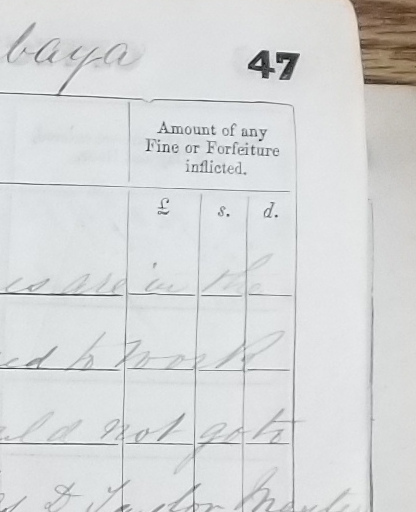 baya
47
Amount of any
Fine or Forfeiture
inflicted.
£ s. d.
es are in the
ed to work
ld not go to
D Taylor